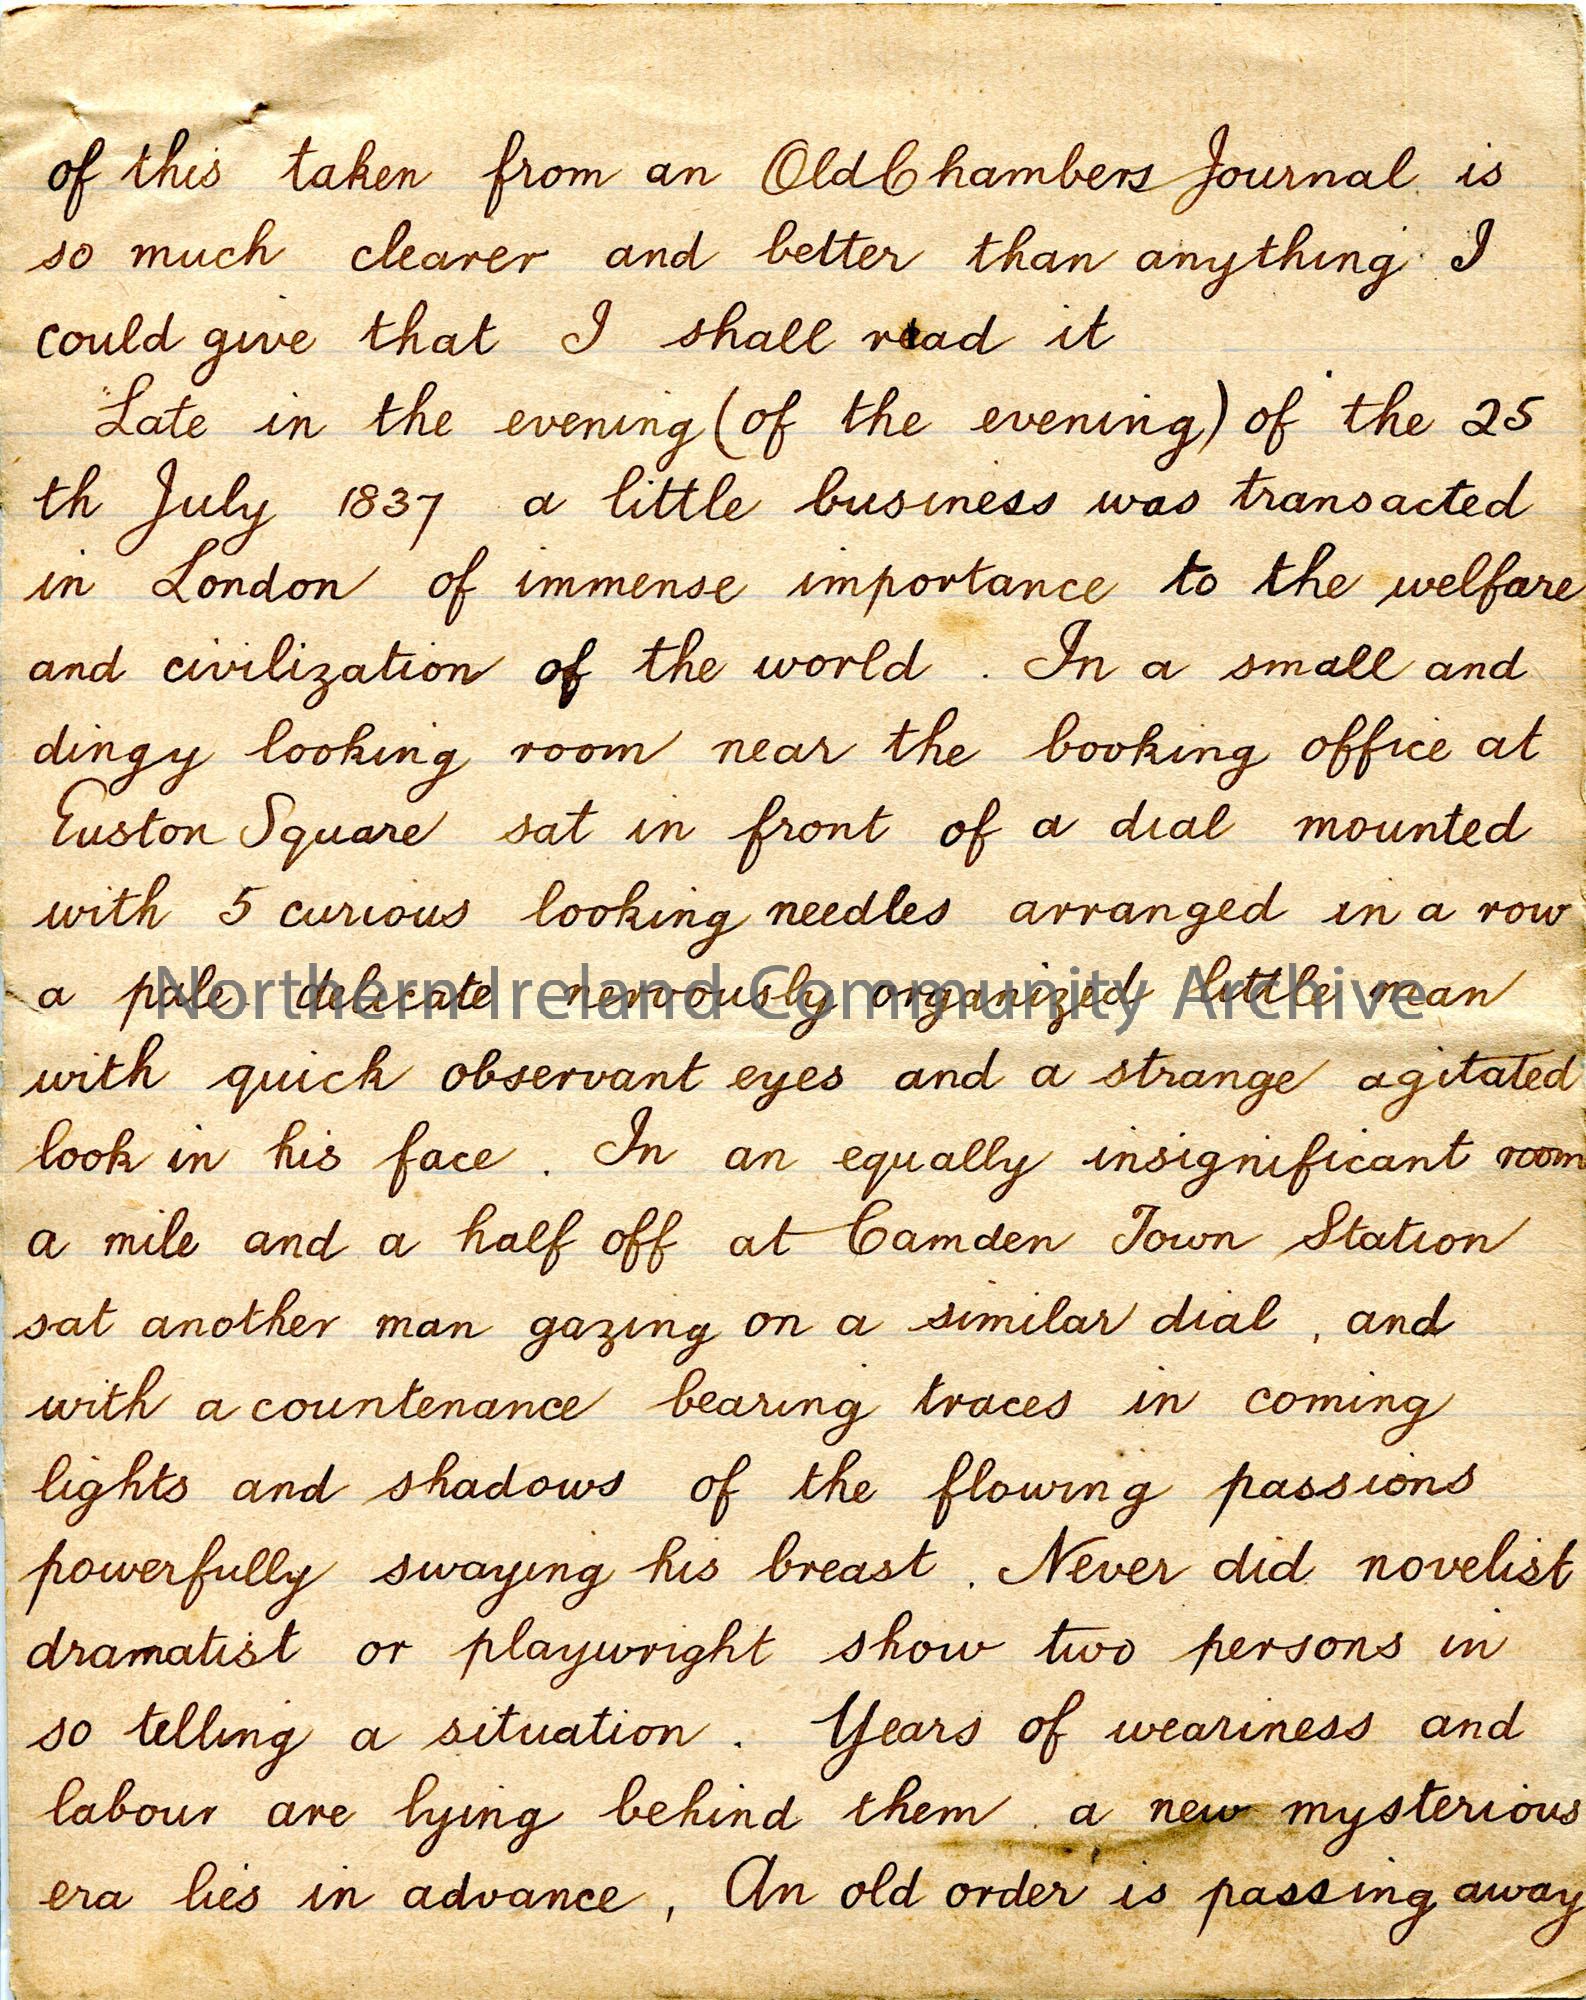 of this taken from an Old Chambers Journal is
so much clearer and better than anything I
could give that I shall read it
Late in the evening (of the evening) of the 25
th July 1837 a little business was transacted
in London of immense importance to the welfare
and civilization of the world . In a small and
dingy looking room near the booking office at
Euston Square sat in front of a dial mounted
with 5 curious looking needles arranged in a row
a pale delicate nervously organized little man
Northern Ireland Community Archive
with quick observant eyes and a strange agitated
look in his face . In an equally insignificant room
a mile and a half off at Camden Town Station
sat another man gazing on a similar dial , and
with a countenance bearing traces in coming
lights and shadows of the flowing passions
powerfully swaying his breast . Never did novelist
dramatist or playwright show two persons in
so telling a situation . Years of weariness and
labour are lying behind them a new mysterious
era lies in advance , An old order is passing away